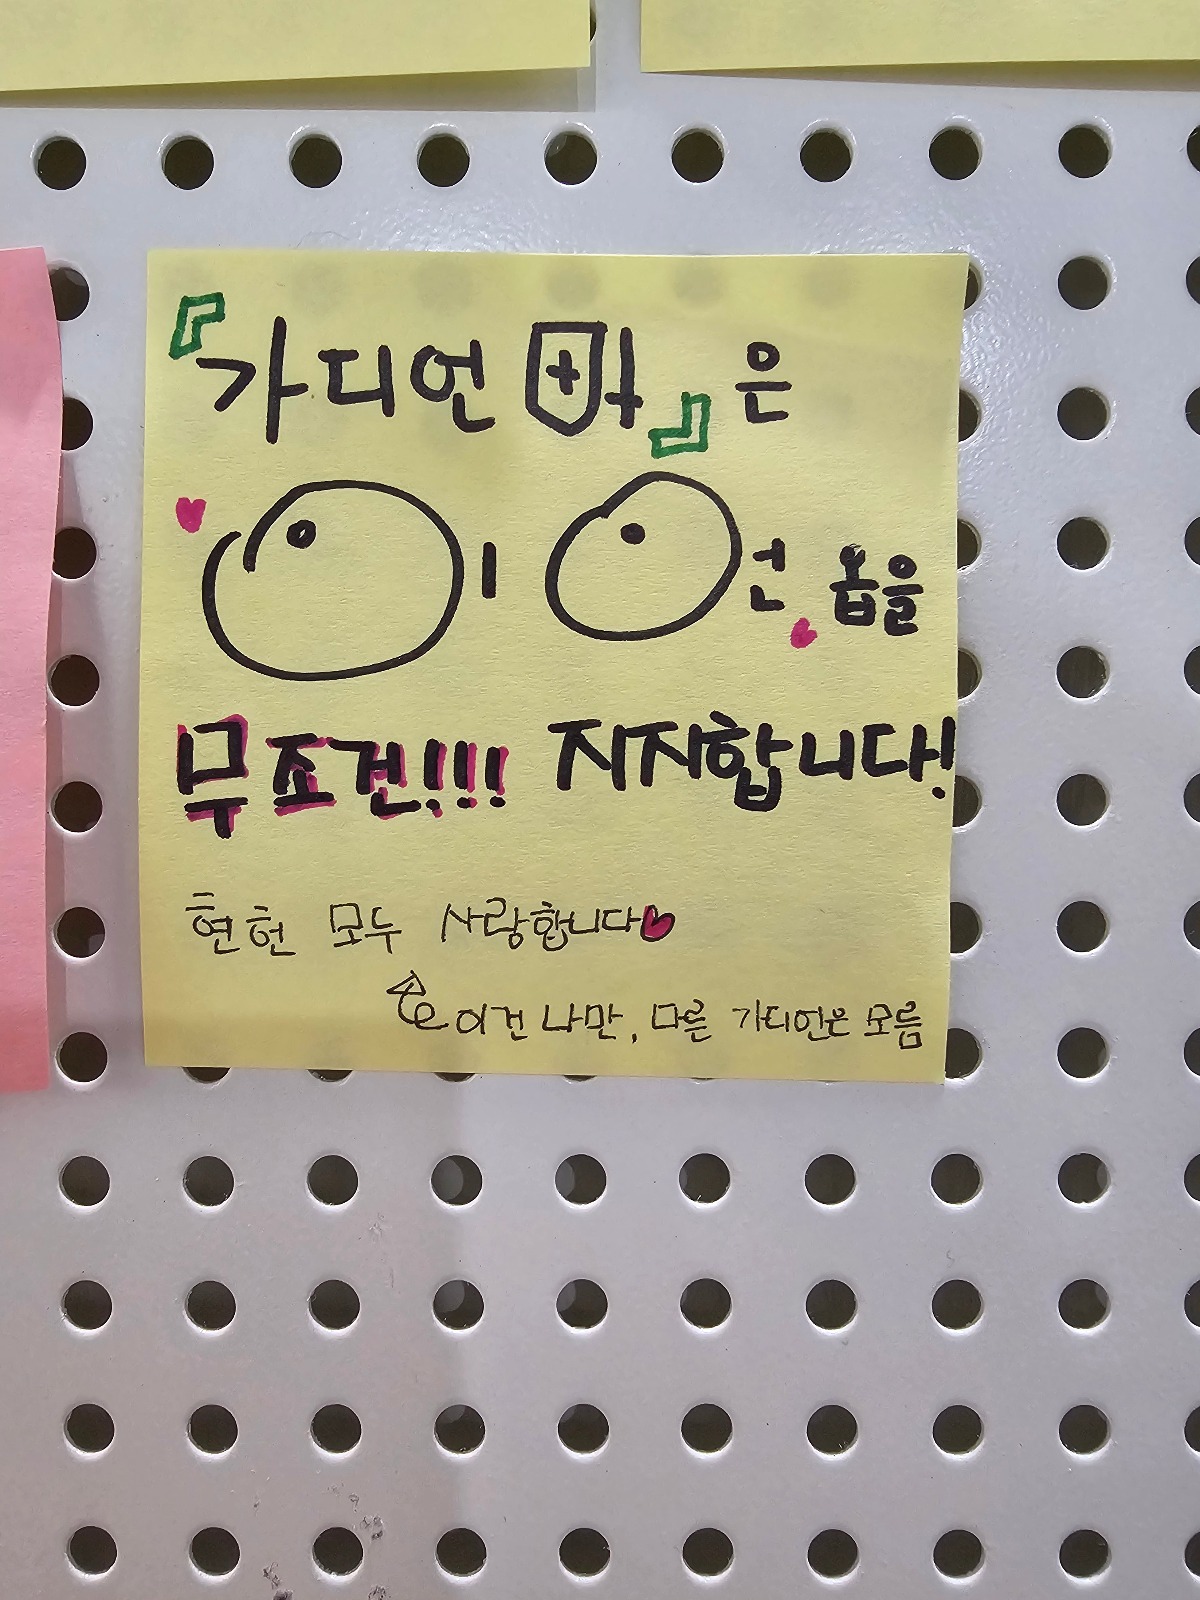 『가디언 마』은
이언 옵을
무조건!!! 지지합니다!
현헌 모두 사랑합니다
이건 나만, 다른 가디언은 모름